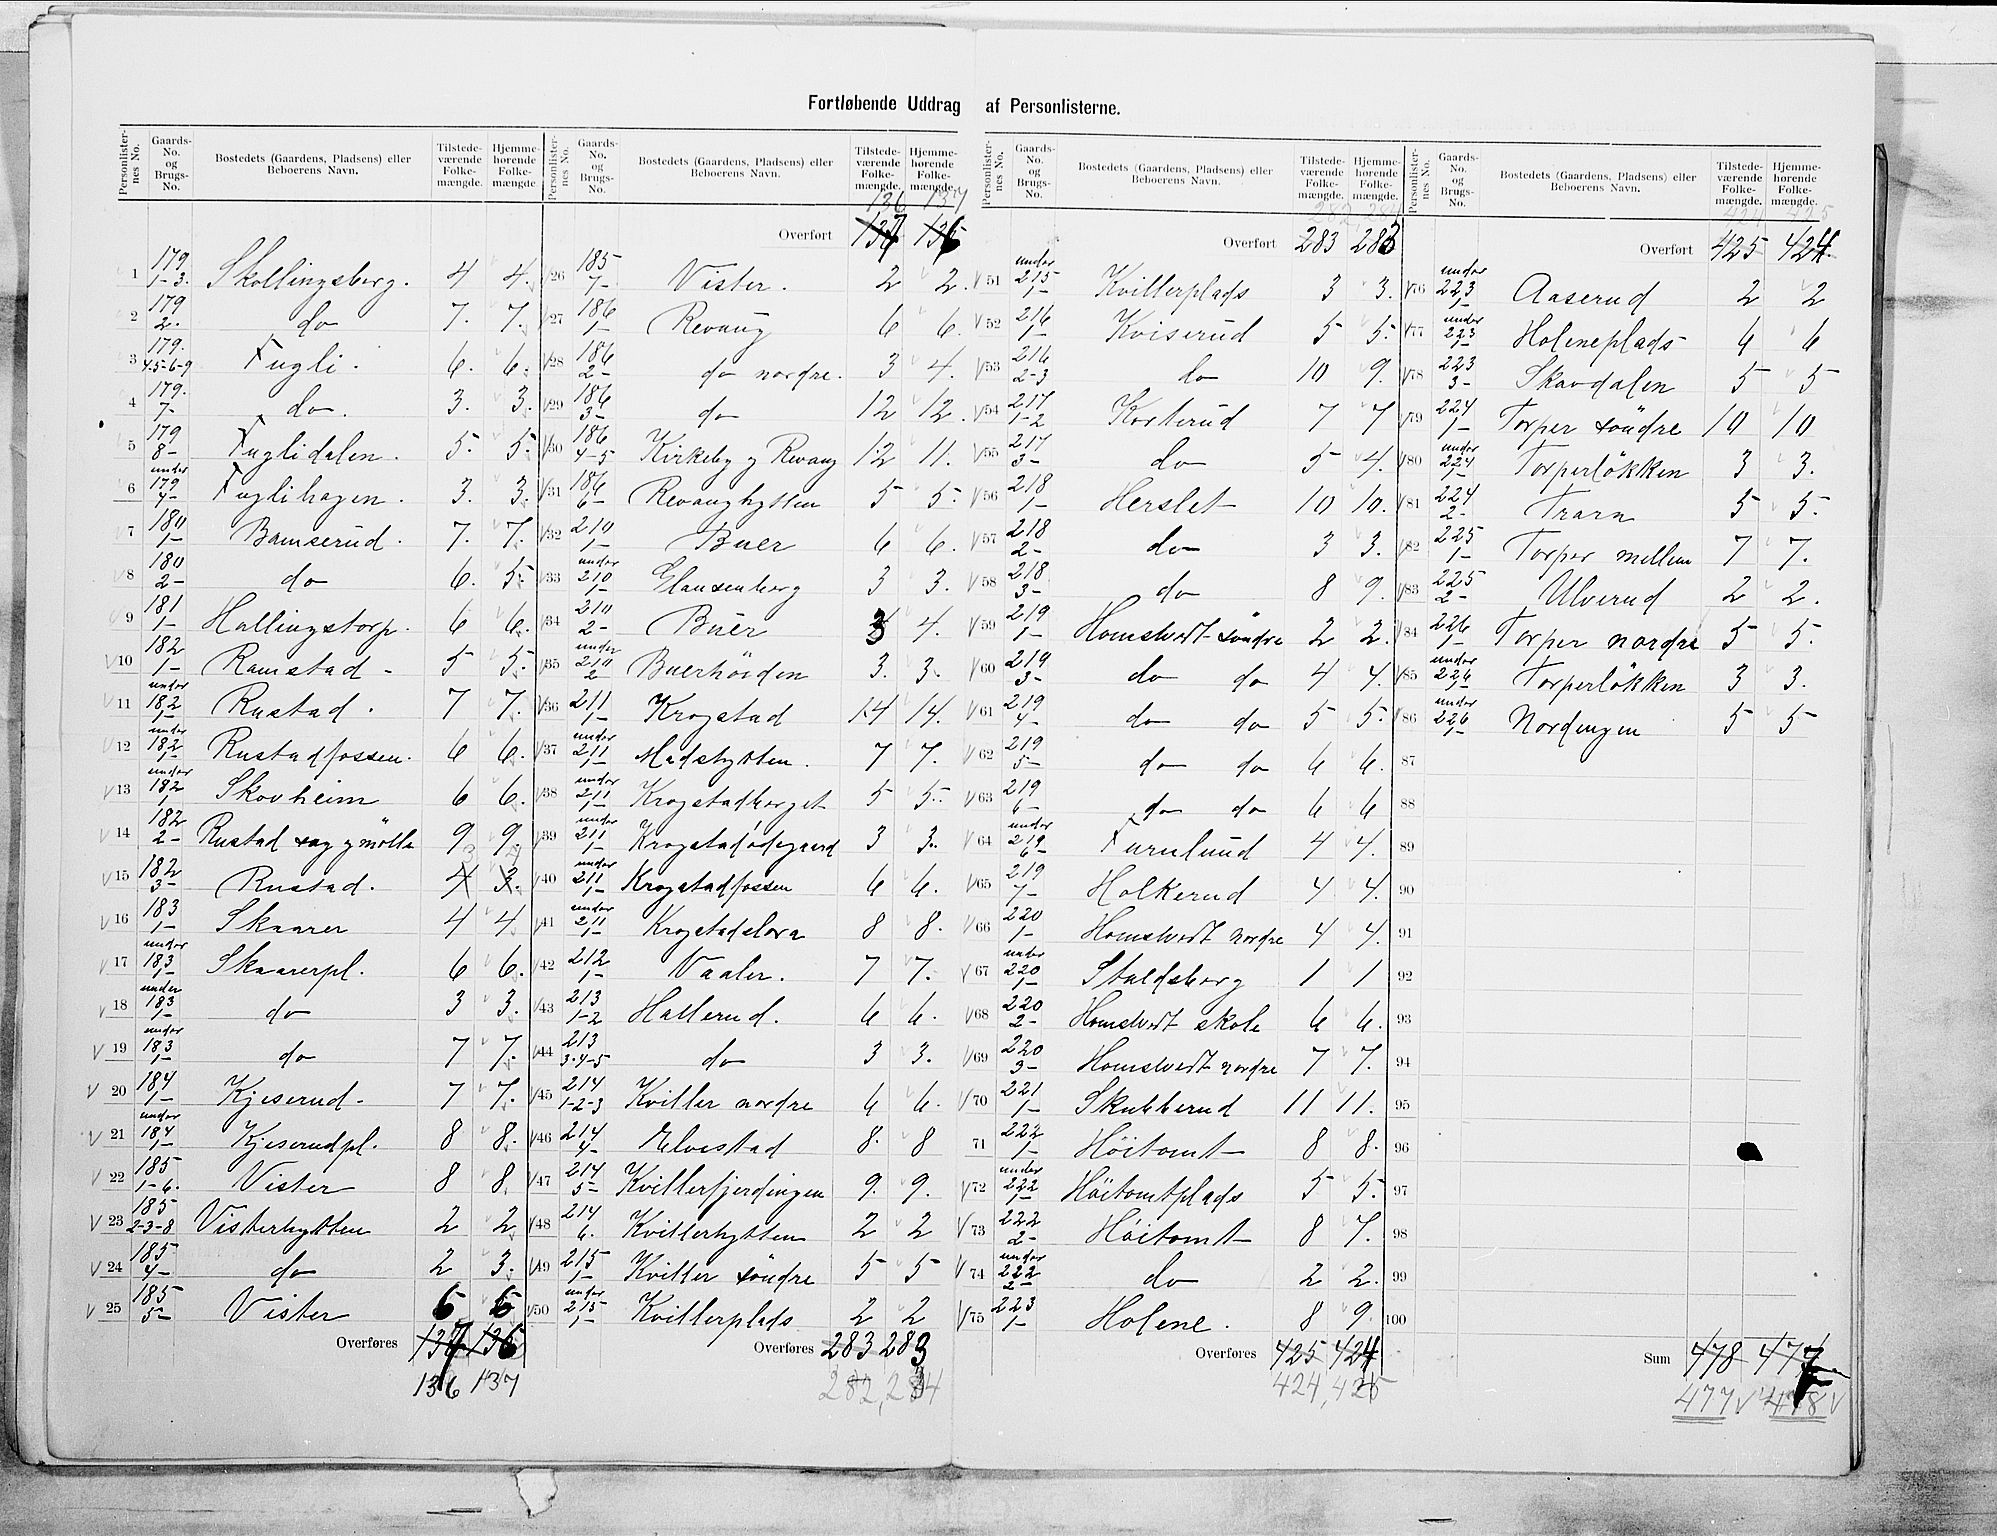 Fortløbende Uddrag af Personlisterne.
Personlister-nes No. Gaards-No. og Brugs-No. Bostedets (Gaardens, Pladsens) eller Beboerens Navn. Tilstede-værende Folke-mængde. Hjemme-hørende Folke-mængde
1 179 1-3. Skollingsberg. 4 4.
2 179 2. do 7. 7.
3 179. 4-5-6-9 Fugli. 6. 6.
4 179. 7- do. 3. 3.
5 179 8- Fuglidalen. 5. 5.
6 under 179 4- Fuglihagen. 3. 3.
7 180 1- Bamserud. 7. 7.
8 180 2- do 6. 5.
9 181 1- Hallingstorp. 6 6.
10 182 1- Ramstad - 5 5.
11 under 182 1- Rustad. 7 7.
12 under 182 1- Rustadfossen. 6 6.
13 under 182 1 Skovheim 6 6.
14 182 2- Rustad sag y mölle 9 9
15 182 3- Rustad. 4 3.
16 183 1- Skaarer 4 4
17 under 183 1- Skaarerpl. 6 6.
18 under 183 1- do 3 3.
19 under 183 1- do 7 7.
20 184 1- Kjeserud. 7 7.
21 under 184 1- Kjeserudpl. 8 8.
22 185 1-6. Vister 8 8.
23 185 2-3-8 Visterhytten 2 2
24 185 4- do 2 3.
25 185 5- Vister 6 6
Overføres 137 136
136 137
Personlister-nes No. Gaards-No. og Brugs-No. Bostedets (Gaardens, Pladsens) eller Beboerens Navn. Tilstede-værende Folke-mængde. Hjemme-hørende Folke-mængde.
136 137
Overført 137 136
26 185 7- Vister. 2 2.
27 186 1- Revaug 6 6.
28 186 2- do nordre. 3 4.
29 186 3- do 12 12.
30 186 4-5 Kirkeby y Revaug 12 11.
31 186 6- Revaughytten 5 5.
32 210 1- Buer 6 6.
33 under 210 1- Glausenberg 3 3.
34 210 2- Buer 3 4.
35 under 210 2 Buerhösden 3. 3.
36 211 1- Krogstad 14 14.
37 under 211 1- Madshytten. 7 7.
38 under 211 1- Krogstadberget 5 5.
39 under 211 1- Krogstadødegaard 3 3.
40 under 211 1- Krogstadfossen 6 6.
41 under 211 1- Krogstadslora 8 8.
42 212 1- Vaaler. 7 7.
43 213 1-2 Hallerud. 6 6.
44 213 3-4-5 do 3 3.
45 214 1-2-3 Kviller nordre 6 6.
46 214 4- Elvestad 8. 8
47 214 5- Kvillerfjerdingen 9. 9.
48 214 6. Kvillerhytten 2 2
49 215 1- Kviller söndre 5 5
50 under 215 1- Kvillerplads 2 2
Overføres 283 283
282, 284
Personlister-nes No. Gaards-No. og Brugs-No. Bostedets (Gaardens, Pladsens) eller Beboerens Navn. Tilstede-værende Folke-mængde. Hjemme-hørende Folke-mængde.
282 284
Overført 283 283
51 under 215 1- Kvillerplads 3 3.
52 216 1- Kviserud 5 5.
53 216 2-3 do 10 9.
54 217 1-2 Korterud 7 7
55 217 3- do 5 4.
56 218 1- Herslet 10 10.
57 218 2- do 3 3.
58 218 3- do 8 9.
59 219 1- Homstvedt söndre 2 2.
60 219 3- do do 4 4.
61 219 4- do do 5 5.
62 219 5- do do 6 6.
63 219 6- do do 6 6
64 under 219 6- Furulund 4 4.
65 219 7- Holkerud 4 4.
66 220 1- Homstvedt nordre 4 4.
67 under 220 1- Staldsberg 1 1
68 220 2- Homstvedt skole 6 6.
69 220 3- Homstvedt nordre 7 7.
70 221 1- Skubberud 11 11.
71 222 1- Höitomt 8 8.
72 under 222 1- Höitomtplads 5 5.
73 222 2- Höitomt 8 7.
74 under 222 2- do 2 2.
75 223 1- Holene. 8 9
Overføres 425 424
424, 425
Personlister-nes No. Gaards-No. og Brugs-No. Bostedets (Gaardens, Pladsens) eller Beboerens Navn. Tilstede-værende Folke-mængde. Hjemme-hørende Folke-mængde.
424 425
Overført 425 424.
76 under 223 1- Aaserud 2 2
77 under 223 1- Holeneplads 6 6
78 223 3- Skavdalen 5 5
79 224 1- Torper söndre 10 10
80 under 224 1- Torperlökken 3 3.
81 224 2- Trara 5 5.
82 225 1- Torper mellem 7 7.
83 225 2- Ulverud 2 2.
84 226 1- Torper nordre 5 5.
85 under 226 1- Torperlökken 3 3.
86 under 226 1- Nordengen 5 5
87
88
89
90
91
92
93
94
95
96
97
98
99
100
Sum 478 477
477 478